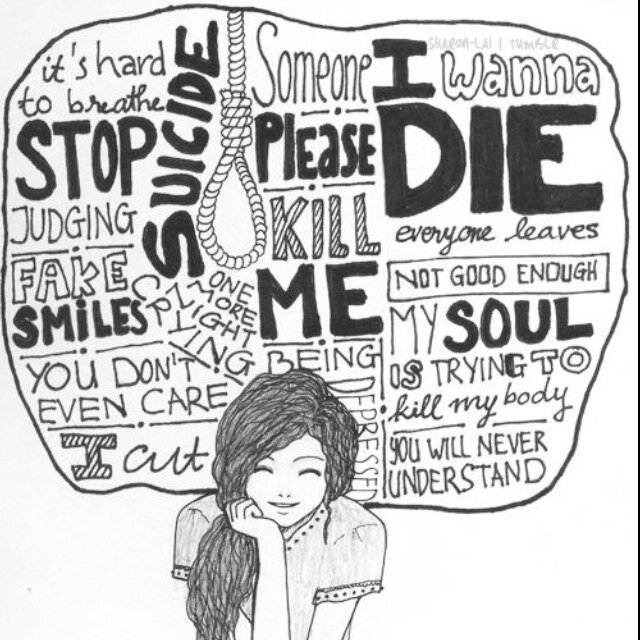 SHARON-LAI | TUMBLR
it's hard
to breathe
STOP
JUDGING
FAKE
SMILES
YOU DON'T
EVEN CARE
I cut
SUICIDE
ONE
MORE
LIGHT
Someone
PLEASE
KILL
ME
BEING
DEPRESSED
I wanna
DIE
everyone leaves
NOT GOOD ENOUGH
MY SOUL
IS TRYING TO
kill my body
YOU WILL NEVER
UNDERSTAND